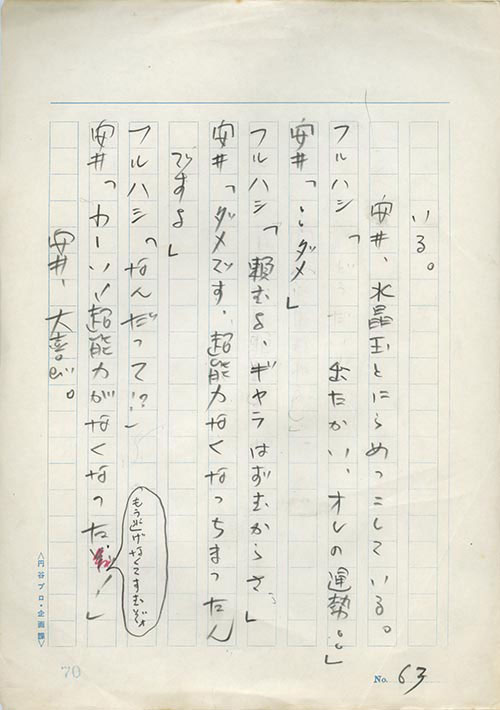 いる。
安井、水晶玉とにらめっこしている。
フルハシ「出たかい、オレの運勢。」
安井「…ダメ」
フルハシ「頼むよ、ギャラはずむからさ」
安井「ダメです、超能力なくなっちまったん
ですよ」
フルハシ「なんだって!?」
安井「わーい!超能力がなくなった!」
もう逃げなくてすむぞ
安井、大喜び。
<円谷プロ・企画課>
70
No. 63